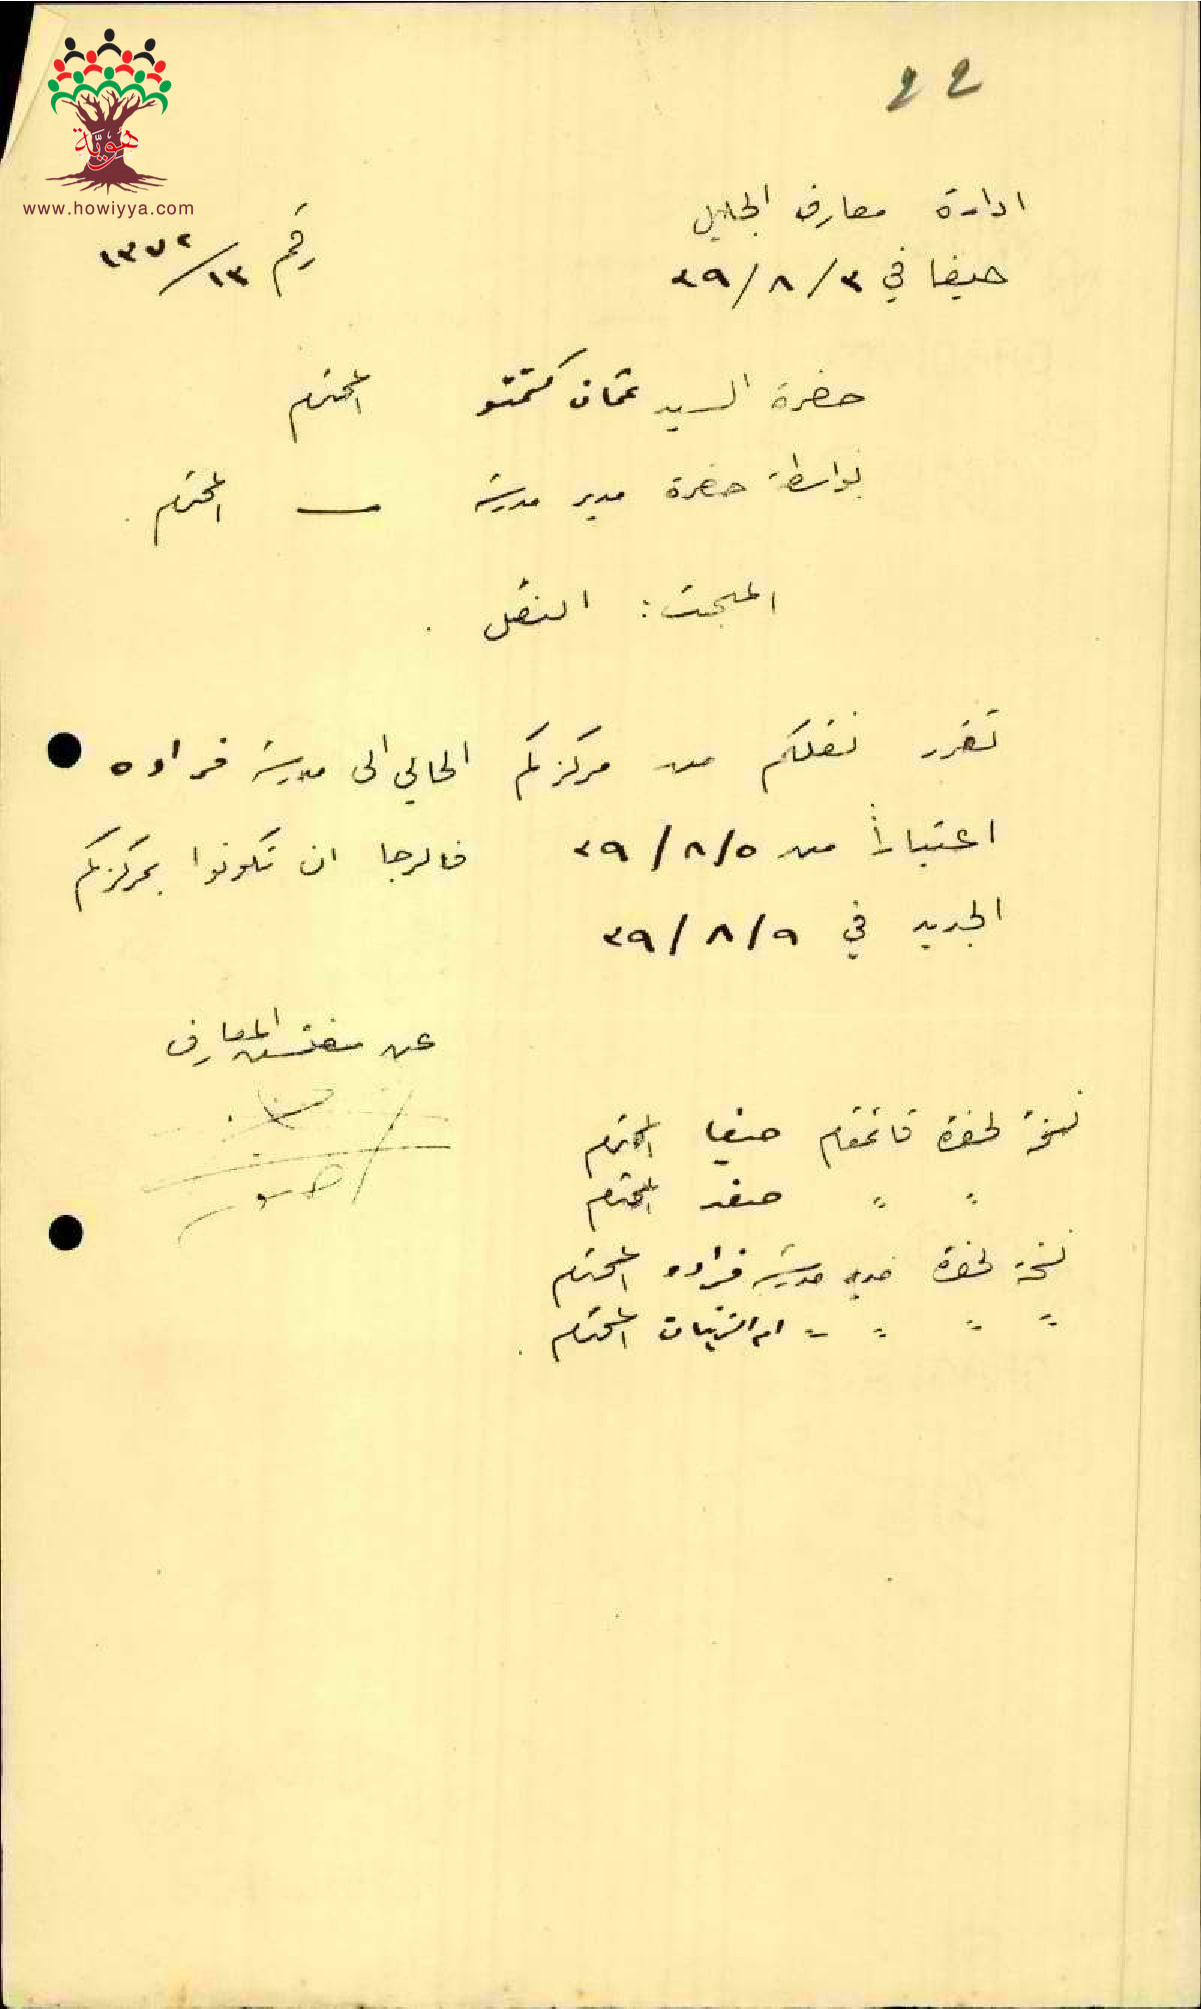 ٤٤
هوية
www.howiyya.com
ادارة معارف الجليل
رقم ١٣٧٢/١٣
حيفا في ٣٩/٨/٣
حضرة السيد عثمان كشتمتو المحترم
بواسطة حضرة مدير مدرسة المحترم
المبحث: النقل
تقرر نقلكم من مركزكم الحالي الى مدرسة فراده
اعتباراً من ٣٩/٨/٥ فالرجا ان تكونوا بمركزكم
الجديد في ٣٩/٨/٩
عن مفتش المعارف
نسخة لحضرة قائمقام حيفا المحترم
" " صفد المحترم
نسخة لحضرة مدير مدرسة فراده المحترم
" " " " ام الزينات المحترم